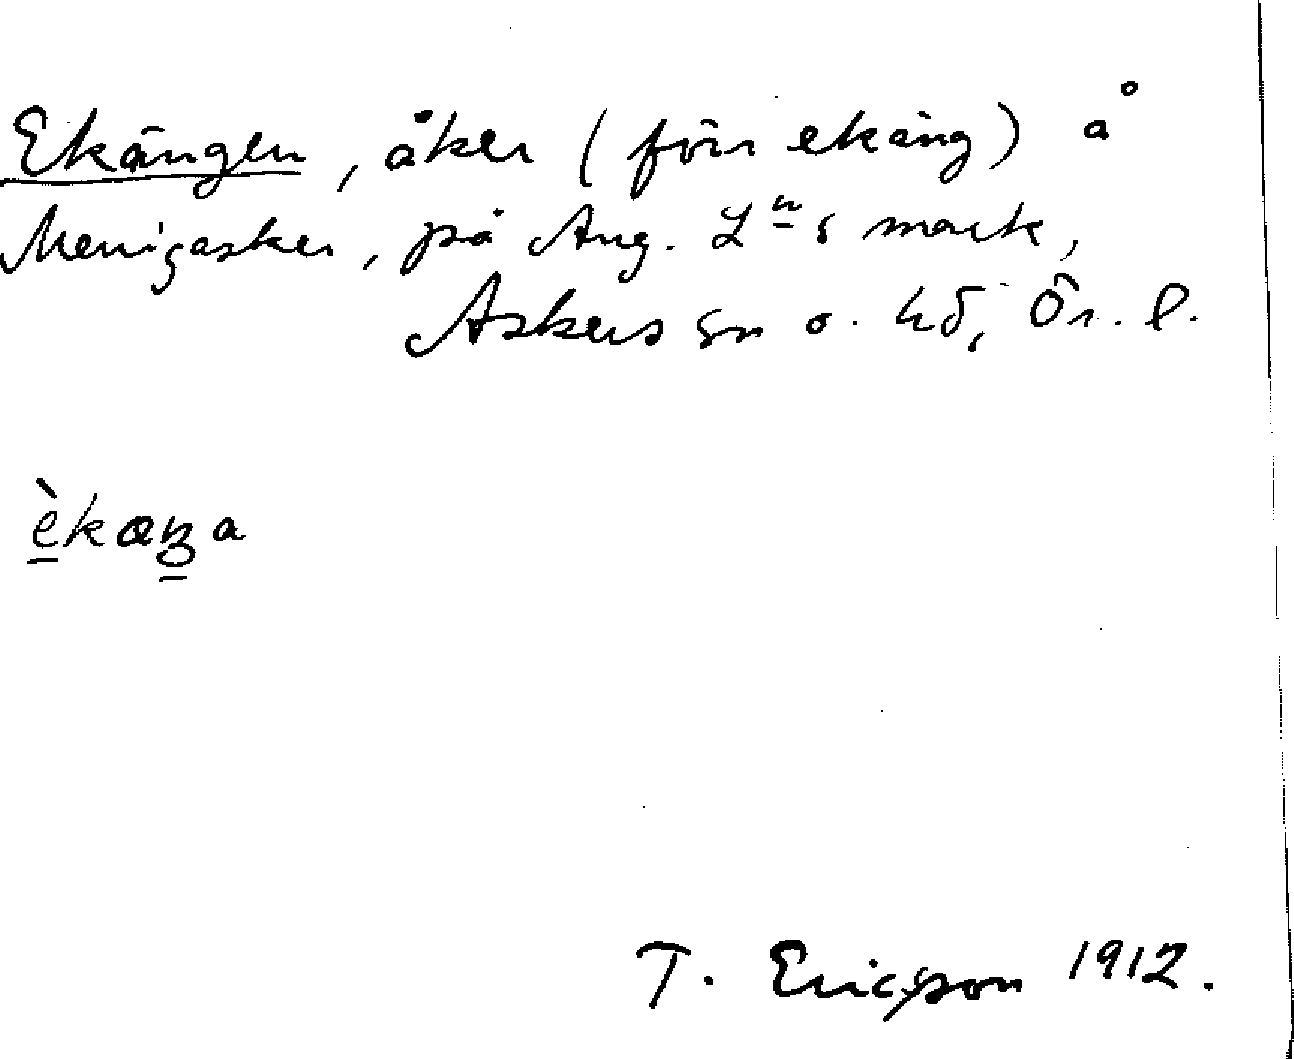 Ekängen, åker (förr ekäng) å
Menigasker, på Aug. L<u>n</u>s mark,
Askers sn o. hd, Ör. l.
T. Ericsson 1912.